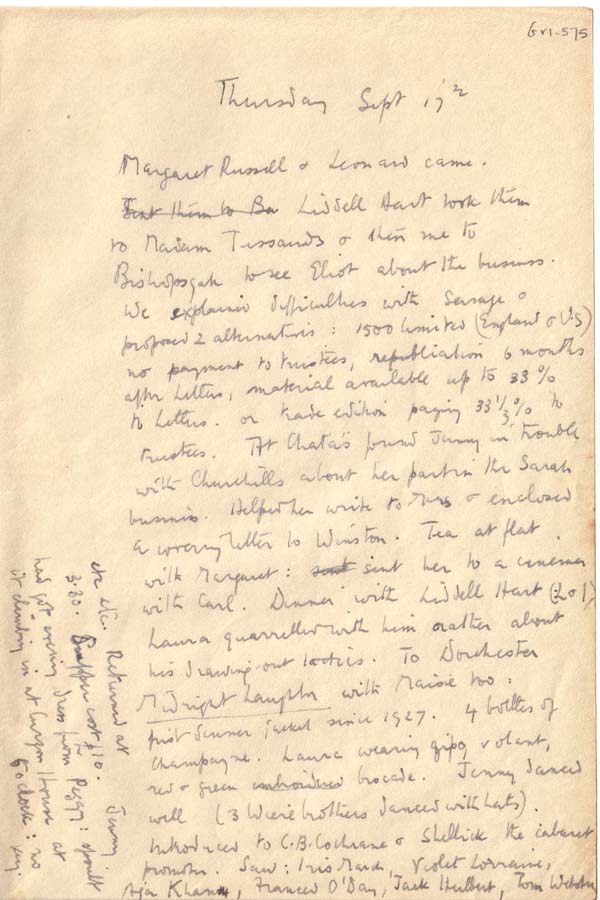 Gri-575
Thursday Sept 17th
Margaret Russell & Leonard came.
Sent them to Ba Liddell Hart took them
to Madam Tussauds & then me to
Bishopsgate to see Eliot about the business.
We explained difficulties with Savage &
proposed 2 alternatives: 1500 limited (England & U.S)
no payment to trustees, republication 6 months
after Letters, material available up to 33%
to Letters. or trade edition paying 33 1/3% to
trustees. At Chata's found Jenny in trouble
with Churchills about her part in the Sarah
business. Helped her write to Mrs & enclosed
a covering letter to Winston. Tea at flat
with Margaret: sent sent her to a cinema
with Carl. Dinner with Liddell Hart (
Laura quarrelled with him rather about
his drawing-out tactics. To Dorchester
Midnight Laughter with Maisie too:
first dinner jacket since 1927. 4 bottles of
champagne. Laura wearing gipo volant,
red & green embroidered brocade. Jenny danced
well (3 Wiere brothers danced with hats).
Introduced to C.B. Cochrane & the cabaret
promoter. Saw: Violet Lorraine,
Aga Khan, Frances O'Day, Jack Hulbert, Tom Webster
etc etc. Returned at
3.30. Supper cost £10. Jenny
had got evening dress from Peggy: spoilt
it climbing in at Curzon House at
5 oclock: no
key.